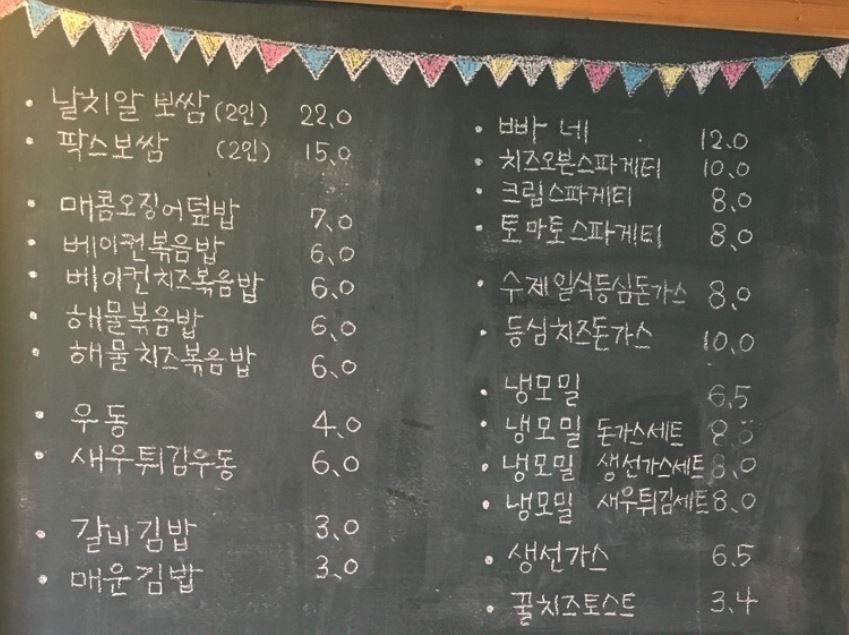 • 날치알 보쌈 (2인) 22.0
• 팍스보쌈 (2인) 15.0
• 매콤오징어덮밥 7.0
• 베이컨볶음밥 6.0
• 베이컨치즈볶음밥 6.0
• 해물볶음밥 6.0
• 해물치즈볶음밥 6.0
• 우동 4.0
• 새우튀김우동 6.0
• 갈비김밥 3.0
• 매운김밥 3.0
• 빠네 12.0
• 치즈오븐스파게티 10.0
• 크림스파게티 8.0
• 토마토스파게티 8.0
• 수제일식등심돈가스 8.0
• 등심치즈돈가스 10.0
• 냉모밀 6.5
• 냉모밀 돈가스세트
• 냉모밀 생선가스세트 8.0
• 냉모밀 새우튀김세트 8.0
• 생선가스 6.5
• 꿀치즈토스트 3.4